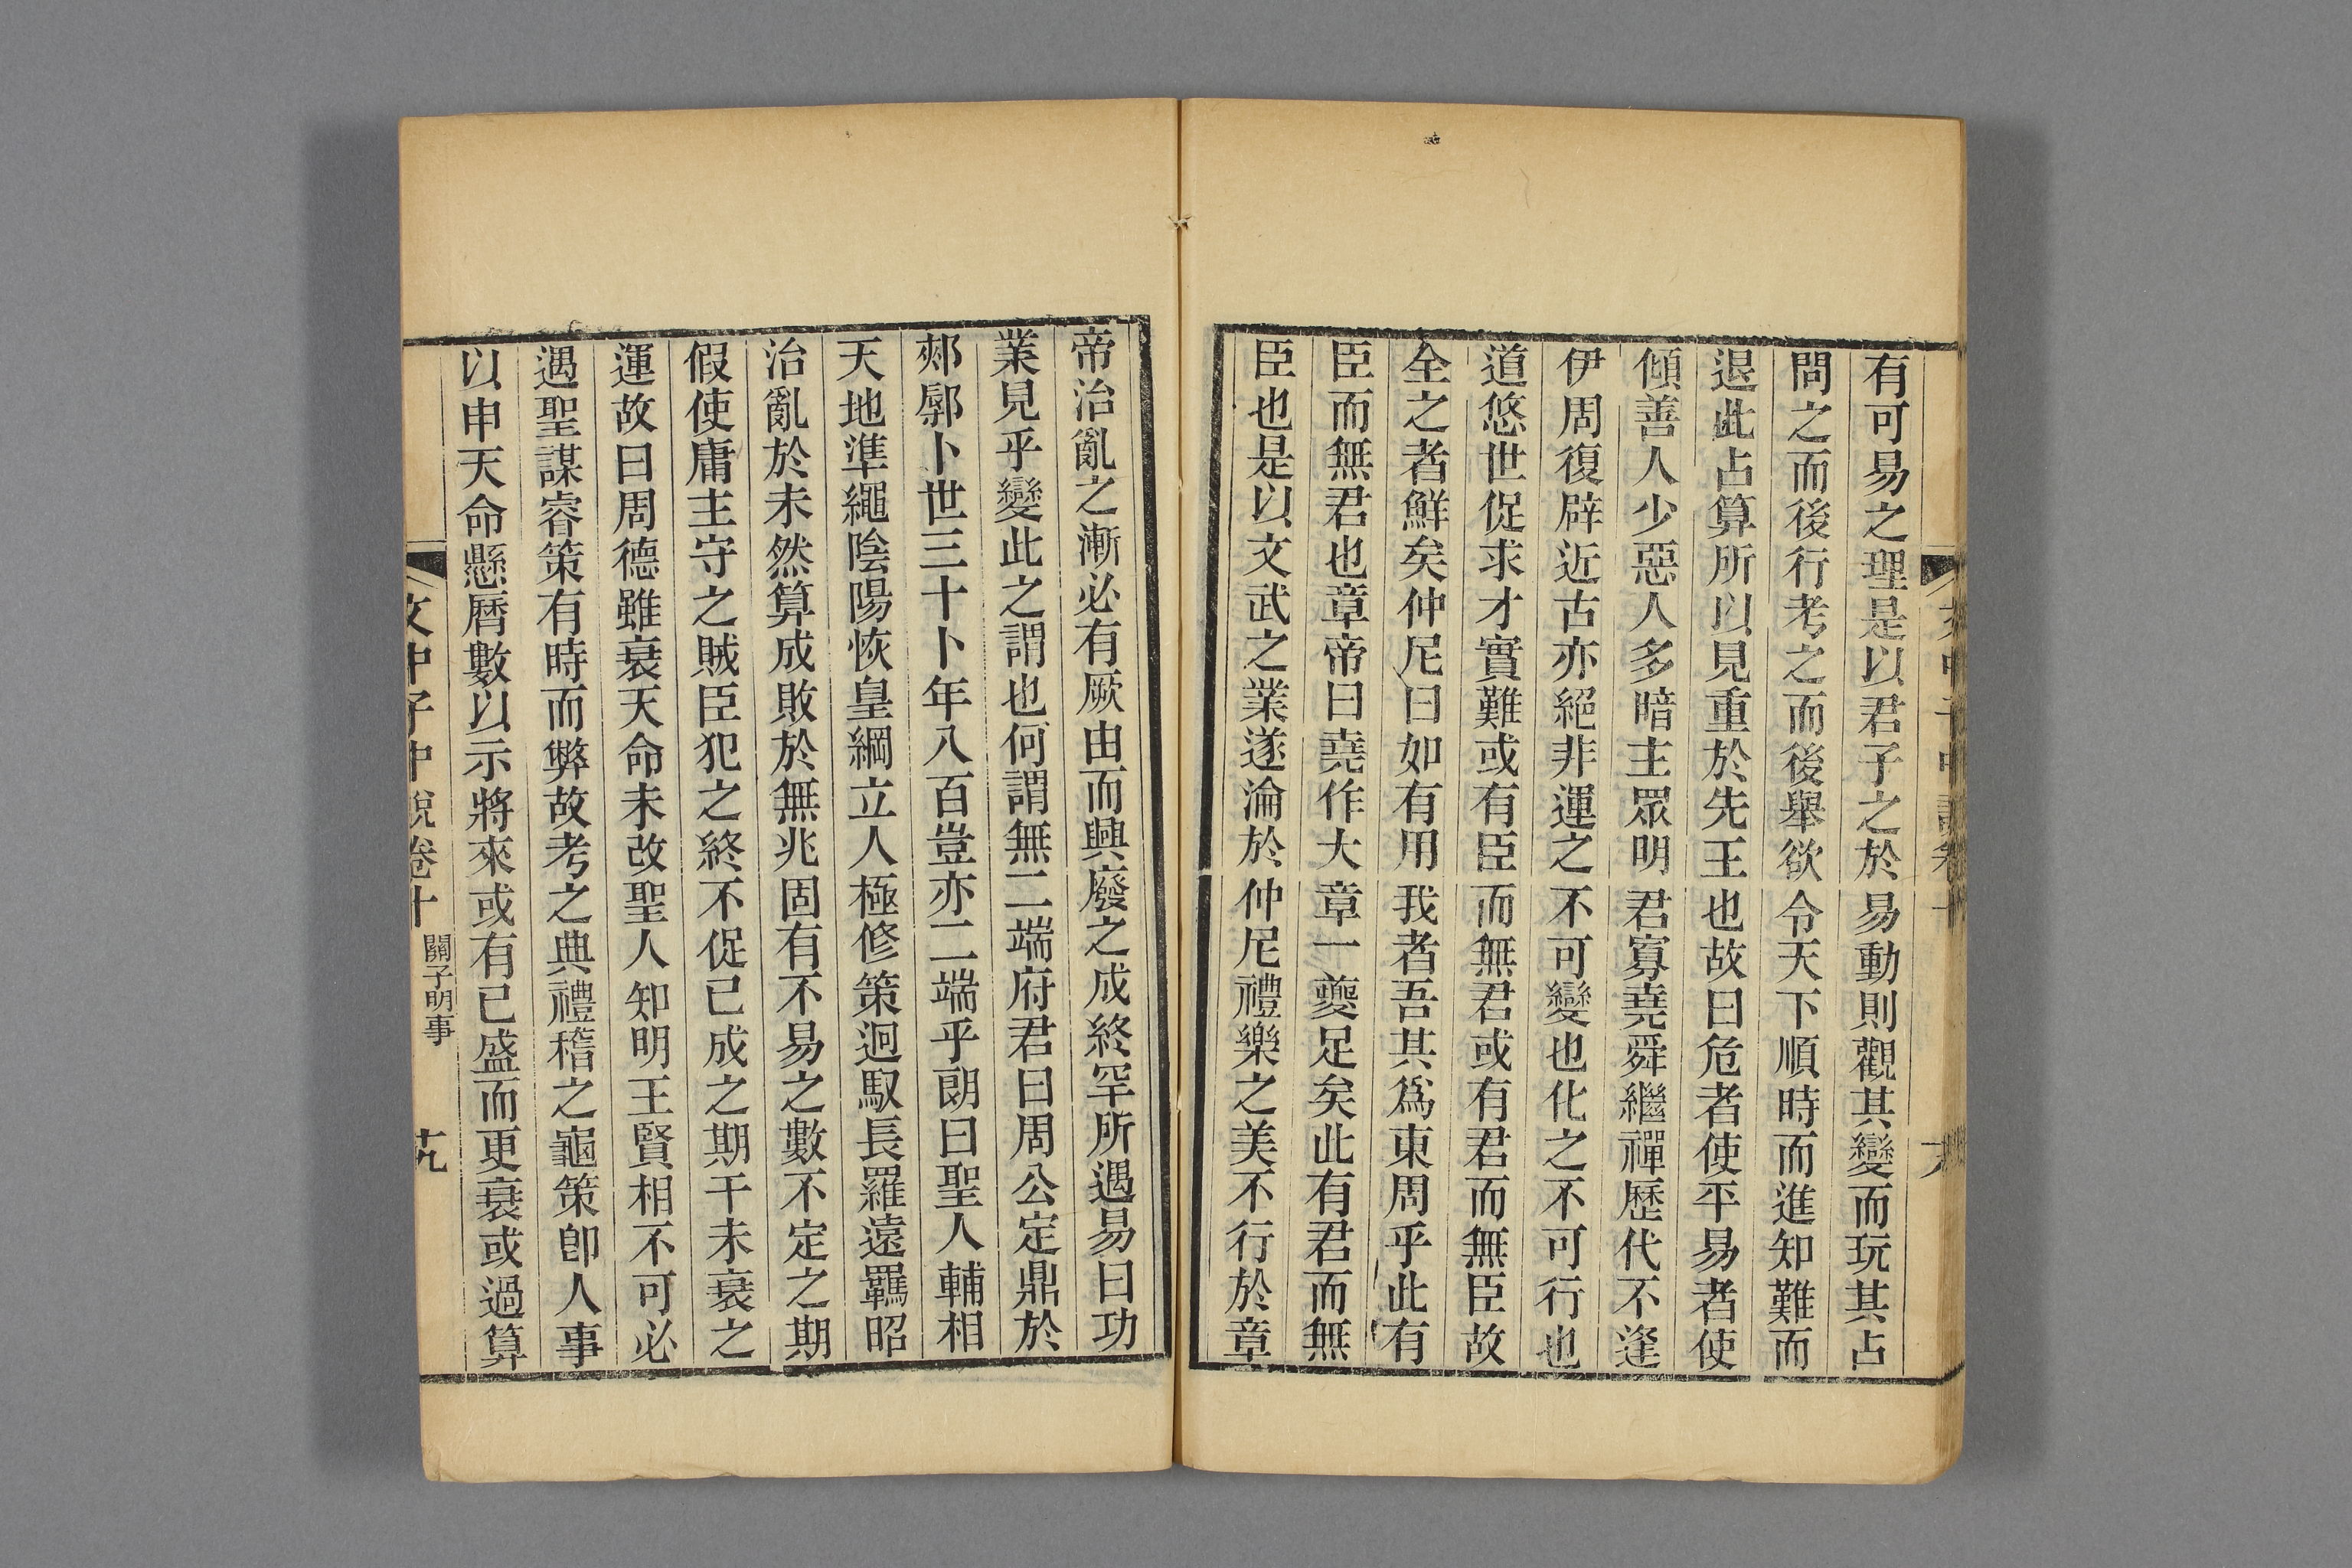 有可易之理是以君子之於易動則觀其變而玩其占
問之而後行考之而後舉欲令天下順時而進知難而
退此占算所以見重於先王也故曰危者使平易者使
傾善人少惡人多暗主眾明君寡堯舜繼禪歷代不逢
伊周復辟近古亦絕非運之不可變也化之不可行也
道悠世促求才實難或有臣而無君或有君而無臣故
全之者鮮矣仲尼曰如有用我者吾其為東周乎此有
臣而無君也章帝曰堯作大章一夔足矣此有君而無
臣也是以文武之業遂淪於仲尼禮樂之美不行於章
帝治亂之漸必有厥由而興廢之成終罕所遇易曰功
業見乎變此之謂也何謂無二端府君曰周公定鼎於
郟鄏卜世三十卜年八百豈亦二端乎朗曰聖人輔相
天地準繩陰陽恢皇綱立人極修策迥馭長羅遠羈昭
治亂於未然算成敗於無兆固有不易之數不定之期
假使庸主守之賊臣犯之終不促已成之期干未衰之
運故曰周德雖衰天命未改聖人知明王賢相不可必
遇聖謀睿策有時而弊故考之典禮稽之龜策卽人事
以申天命懸曆數以示將來或有已盛而更衰或過算
文中子中說卷十
關子明事